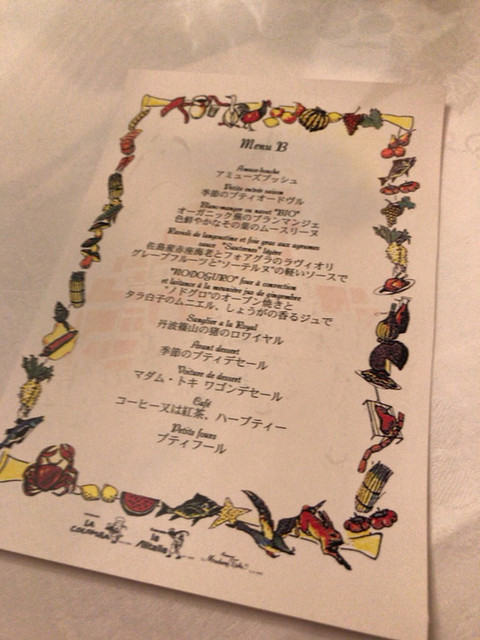 Menu B
Amuse-bouche
アミューズブッシュ
Petite entrée saison
季節のプティオードヴル
Blanc-manger au navet "BIO"
オーガニック蕪のブランマンジェ
色鮮やかなその葉のムースリーヌ
Ravioli de langoustine et foie gras aux agrumes
sauce "Sauternes" légère
佐島産赤座海老とフォアグラのラヴィオリ
グレープフルーツと"ソーテルヌ"の軽いソースで
"NODOGURO" four à convection
et laitance à la meunière jus de gingembre
"ノドグロ"のオーブン焼きと
タラ白子のムニエル、しょうがの香るジュで
Sanglier à la Royal
丹波篠山の猪のロワイヤル
Avant dessert
季節のプティデセール
Voiture de dessert
マダム・トキ ワゴンデセール
Café
コーヒー又は紅茶、ハーブティー
Petits fours
プティフール
LA
COLOMBA
la